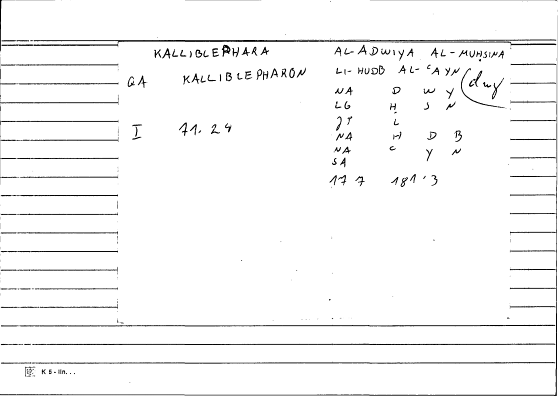 KALLIBLEPHARA
QA KALLIBLEPHARON
I 71.24
AL-ADWIYA AL-MUḤSINA
LI-HUDB AL-ʿAYN (dwy
NA D W Y
LG Ḥ S N
L
NA H D B
NA ʿ Y N
SA
177 181.3
K 6 - lin...